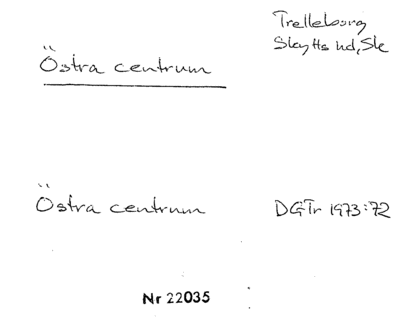 Östra centrum
Trelleborg
Skytts hd, Sk
Östra centrum
DGTr 1973:72
Nr 22035